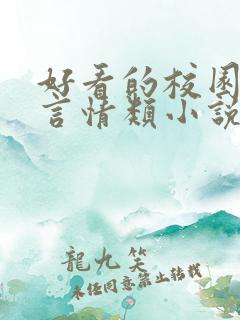 好看的校园
言情类小说
龍九笑
未经同意禁止转载